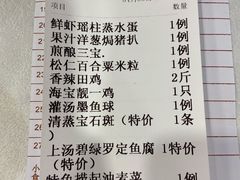 项目
鲜虾瑶柱蒸水蛋 1例
果汁洋葱焗猪扒 1例
煎酿三宝. 1例
松仁百合粟米粒 1例
香辣田鸡 2斤
海宝靓一鸡 1只
灌汤墨鱼球 1例
清蒸宝石斑（特价 1条
）
上汤碧绿罗定鱼腐 1特价
（特价）